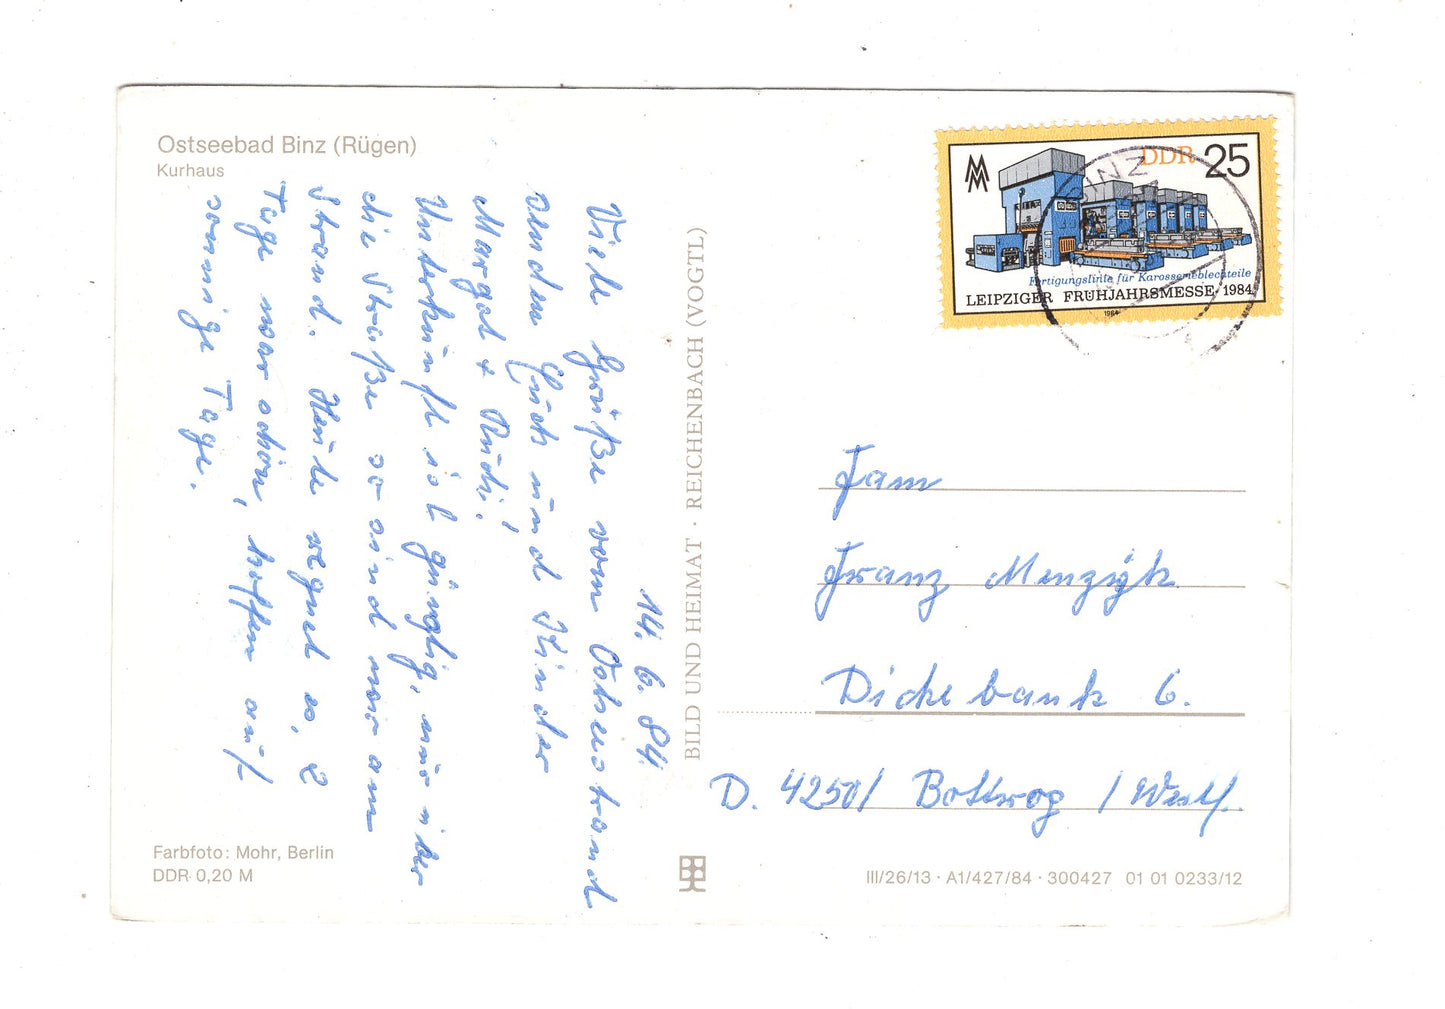 Ostseebad Binz (Rügen)
Kurhaus
14. 6. 84.
Viele Grüße vom Ostseestrand
senden Euch und Kinder
Margot + Rudi!
Unterkunft ist günstig, nur über
die Straße so sind wir am
Strand. Heute regnet es, 2
Tage war schön, hoffen auf
sonnige Tage.
Farbfoto: Mohr, Berlin
DDR 0,20 M
BILD UND HEIMAT · REICHENBACH (VOGTL)
DDR 25
Fertigungslinie für Karosserieblechteile
LEIPZIGER FRÜHJAHRSMESSE · 1984
1984
BINZ
Fam
Franz Menzigk
Dickebank 6.
D. 4250/ Bottrop / Westf.
III/26/13 · A1/427/84 · 300427 01 01 0233/12